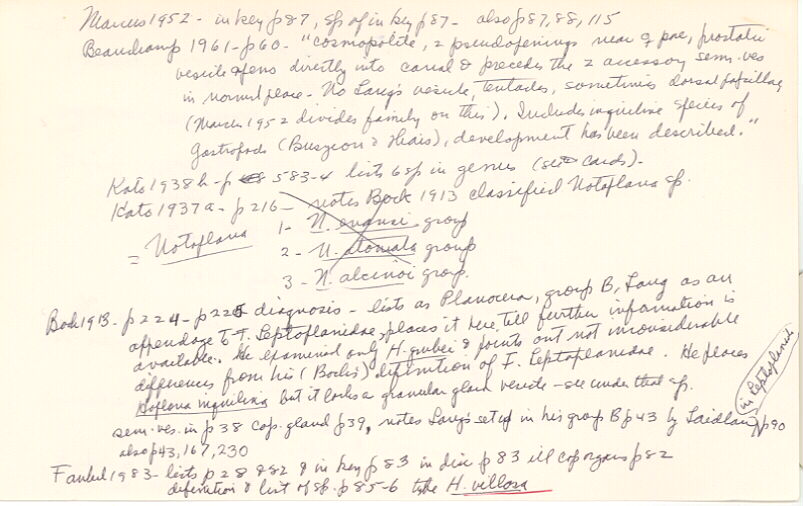 Marcus 1952 - in key p 87, sp of in key p 87 - also p 87, 88, 115
Beauchamp 1961 - p 60 - "cosmopolite, 2 pseudopenings near ♀ pore, prostatic
vesicle opens directly into canal & precedes the 2 accessory sem. ves
in normal place. No Lang's vesicle, tentacles, sometimes dorsal papillae
(Marcus 1952 divides family on this). Includes inquiline species of
Gastropods (Busycon & Thais), development has been described."
Kato 1938 b - p 583-4 lists 6 sp in genus (see cards).
Kato 1937a - p 216 - notes Bock 1913 classified Notoplana sp.
= Notoplana 1 - N. group
2 - N. atomata group
3 - N. alcinoi group.
Bock 1913 - p 224 - p 225 diagnosis - lists as Planocera, group B, Lang as an
appendage to F. Leptoplanidae, places it here till further information is
available. He examined only H. grubei & points out not inconsiderable
differences from his (Bock's) definition of F. Leptoplanidae. He places
Hoploplana inquilina but it lacks a granular gland vesicle - see under that sp.
in Leptoplanidae
sem. ves. in p 38 cop. gland p 39, notes Lang's set up in his group B p 43 by Laidlaw p 90
also p 43, 167, 230
Faubel 1983 - lists p 28 & 82 & in key p 83 in disc p 83 ill cop organs p 82
definition & list of sp. p 85-6 type H. villosa